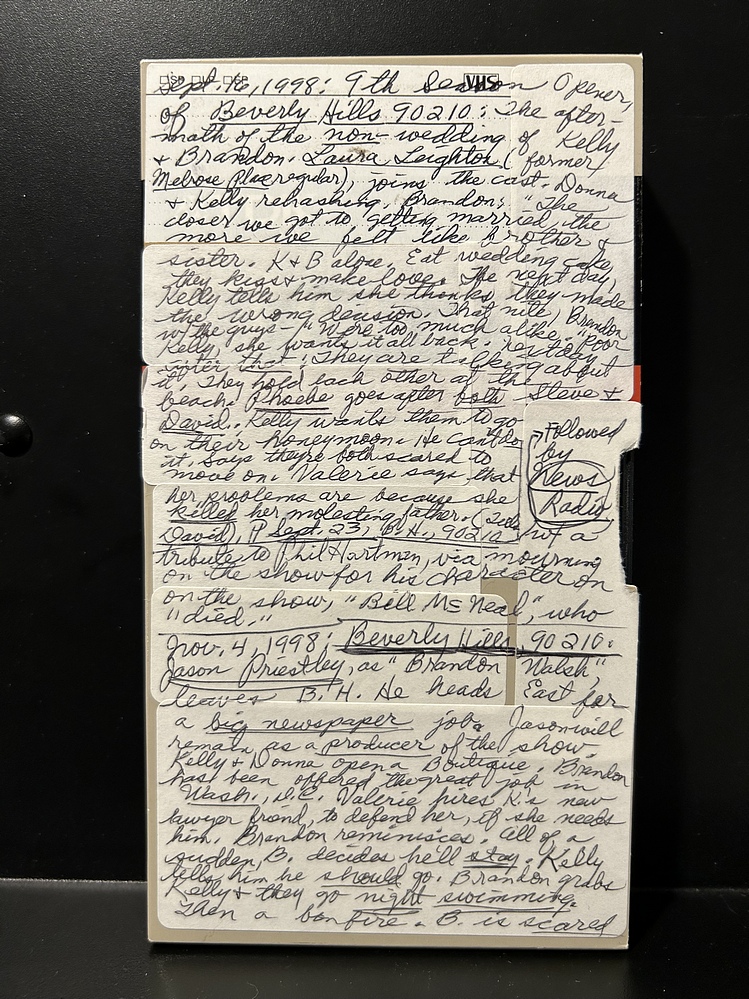 □SP □LP □EP VHS
Sept. 16, 1998: 9th Season Opener,
of Beverly Hills 90210: The after-
math of the non-wedding of Kelly
& Brandon. Laura Leighton (former
Melrose Place regular), joins the cast. Donna
& Kelly rehashing. Brandon: "The
closer we got to getting married, the
more we felt like brother &
sister. K & B alone. Eat wedding cake,
they kiss & make love. The next day,
Kelly tells him she thinks they made
the wrong decision. That nite, Brandon
w/the guys - "We're too much alike." Poor
Kelly, she wants it all back. Next day
after that: They are talking about
it. They hold each other at the
beach. Phoebe goes after both Steve &
David. Kelly wants them to go
on their honeymoon. He can't do
it. Says they're both scared to
move on. Valerie says that
her problems are because she
killed her molesting father. (Tells
David), P Sept. 23, B.H., 90210
Followed
by
News
Radio
w/ a
tribute to Phil Hartman, via mourning
on the show for his character on
on the show, "Bill McNeal", who
"died."
Nov. 4, 1998: Beverly Hills, 90210:
Jason Priestley, as "Brandon Walsh,"
leaves B.H. He heads East for
a big newspaper job. Jason will
remain as a producer of the show.
Kelly & Donna open a Boutique. Brandon
has been offered the great job in
Wash., D.C. Valerie hires K's new
lawyer friend, to defend her, if she needs
him. Brandon reminisces. All of a
sudden, B. decides he'll stay. Kelly
tells him he should go. Brandon grabs
Kelly & they go night swimming.
Then a bonfire. B. is scared